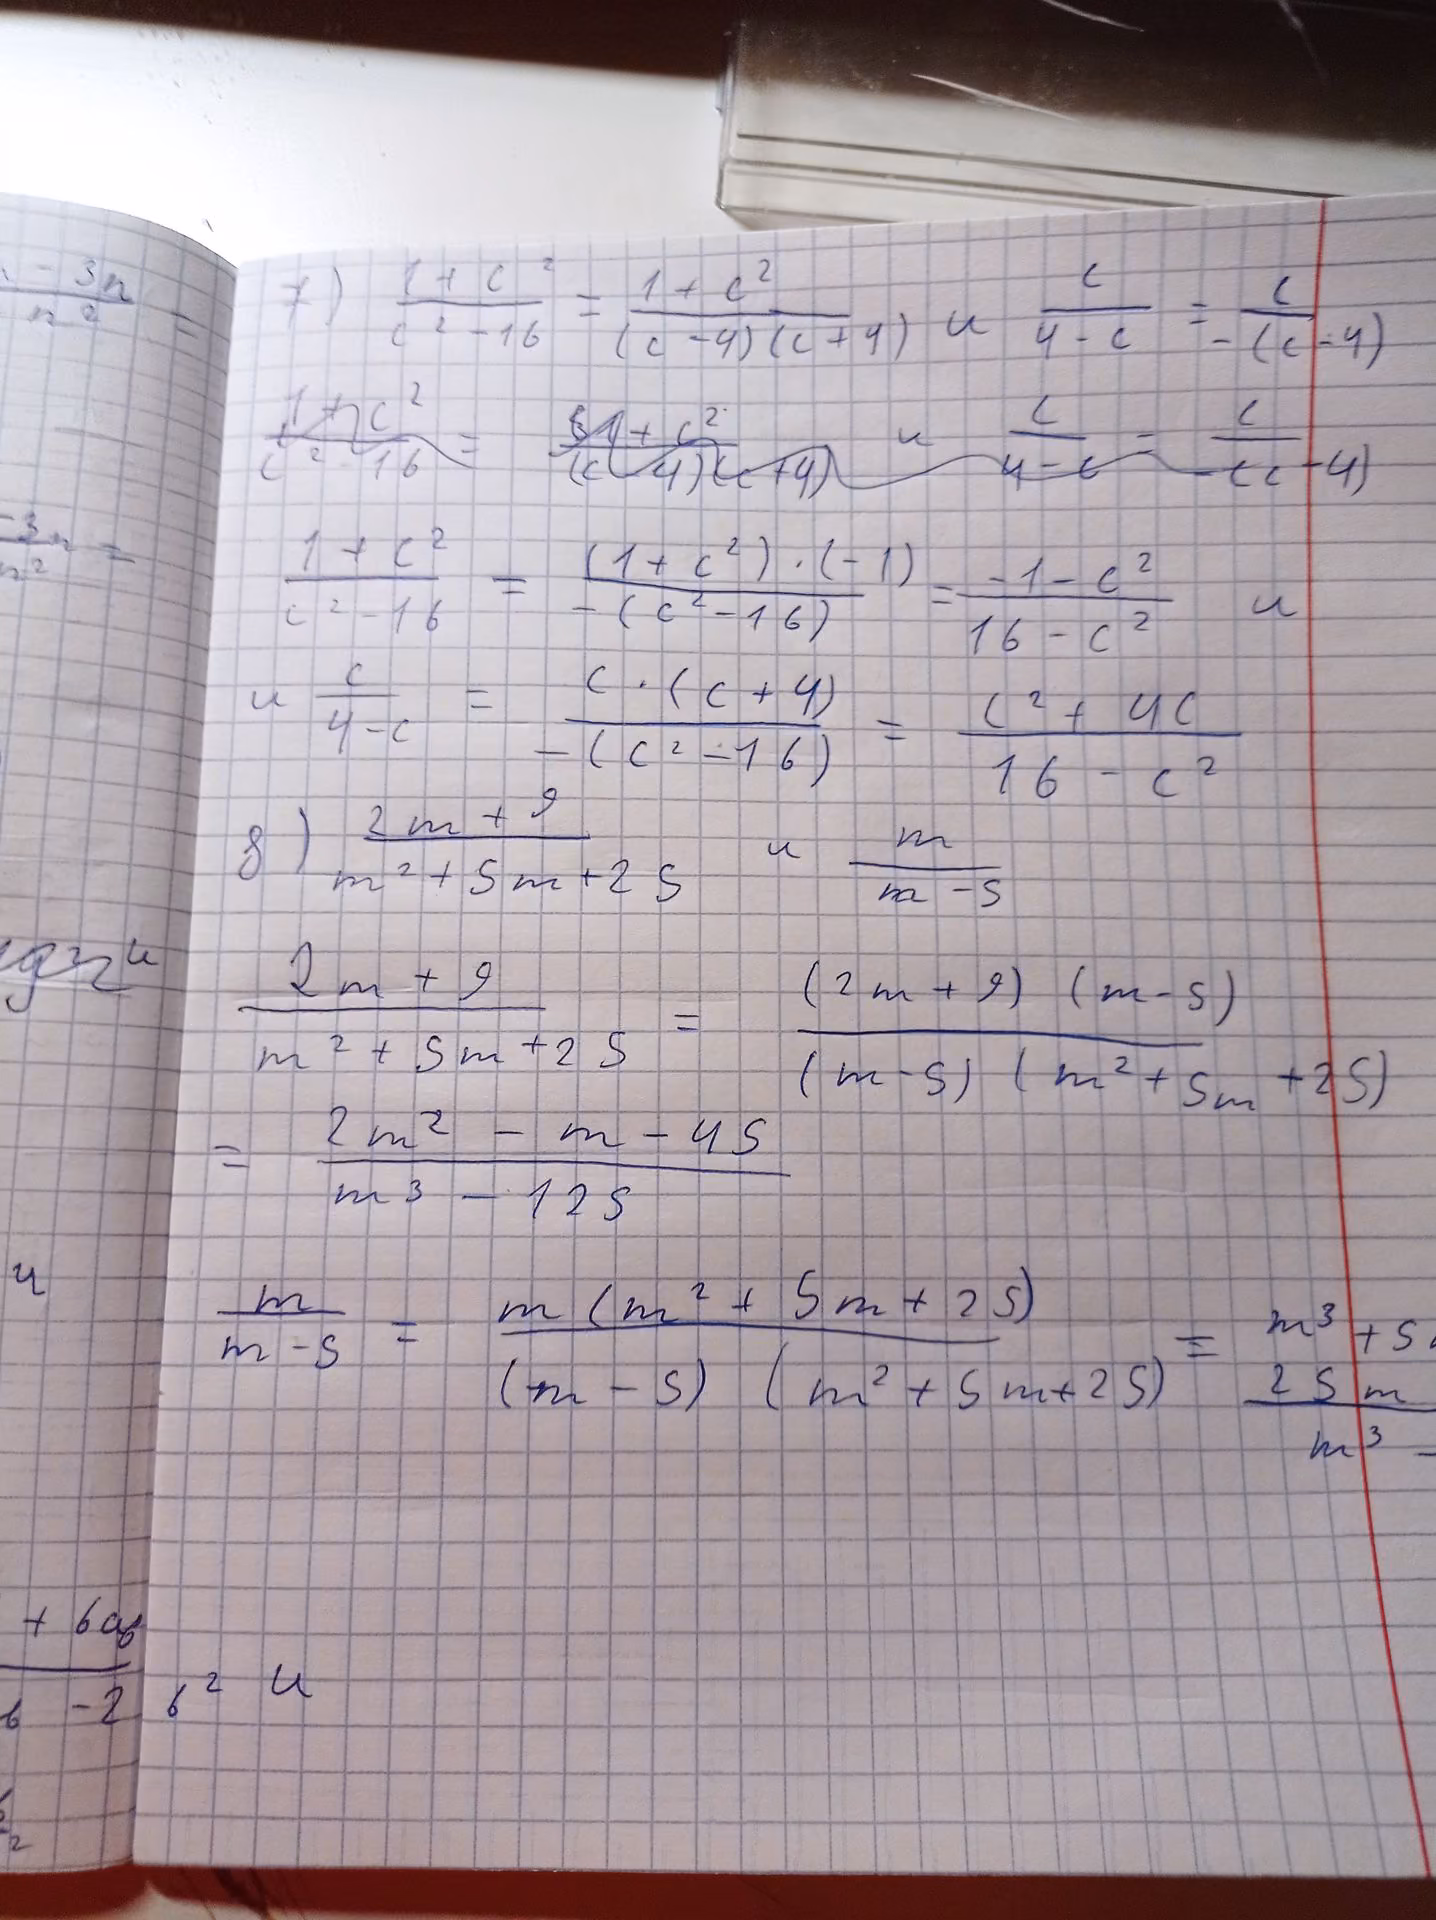 - 3n
n² =
7) (1 + c²)/(c² - 16) = (1 + c²)/((c - 4)(c + 4)) и c/(4 - c) = c/(-(c - 4))
(1 + c²)/(c² - 16) = (1 + c²)/((c - 4)(c + 4)) и c/(4 - c) = c/(-(c - 4))
(1 + c²)/(c² - 16) = ((1 + c²) · (-1))/(-(c² - 16)) = (-1 - c²)/(16 - c²) и
и c/(4 - c) = (c · (c + 4))/(-(c² - 16)) = (c² + 4c)/(16 - c²)
8) (2m + 9)/(m² + 5m + 25) и m/(m - 5)
(2m + 9)/(m² + 5m + 25) = ((2m + 9)(m - 5))/((m - 5)(m² + 5m + 25))
= (2m² - m - 45)/(m³ - 125)
и
m/(m - 5) = (m(m² + 5m + 25))/((m - 5)(m² + 5m + 25)) = m³ + 5
25m
m³ -
+ 6ab
- 2 b² и